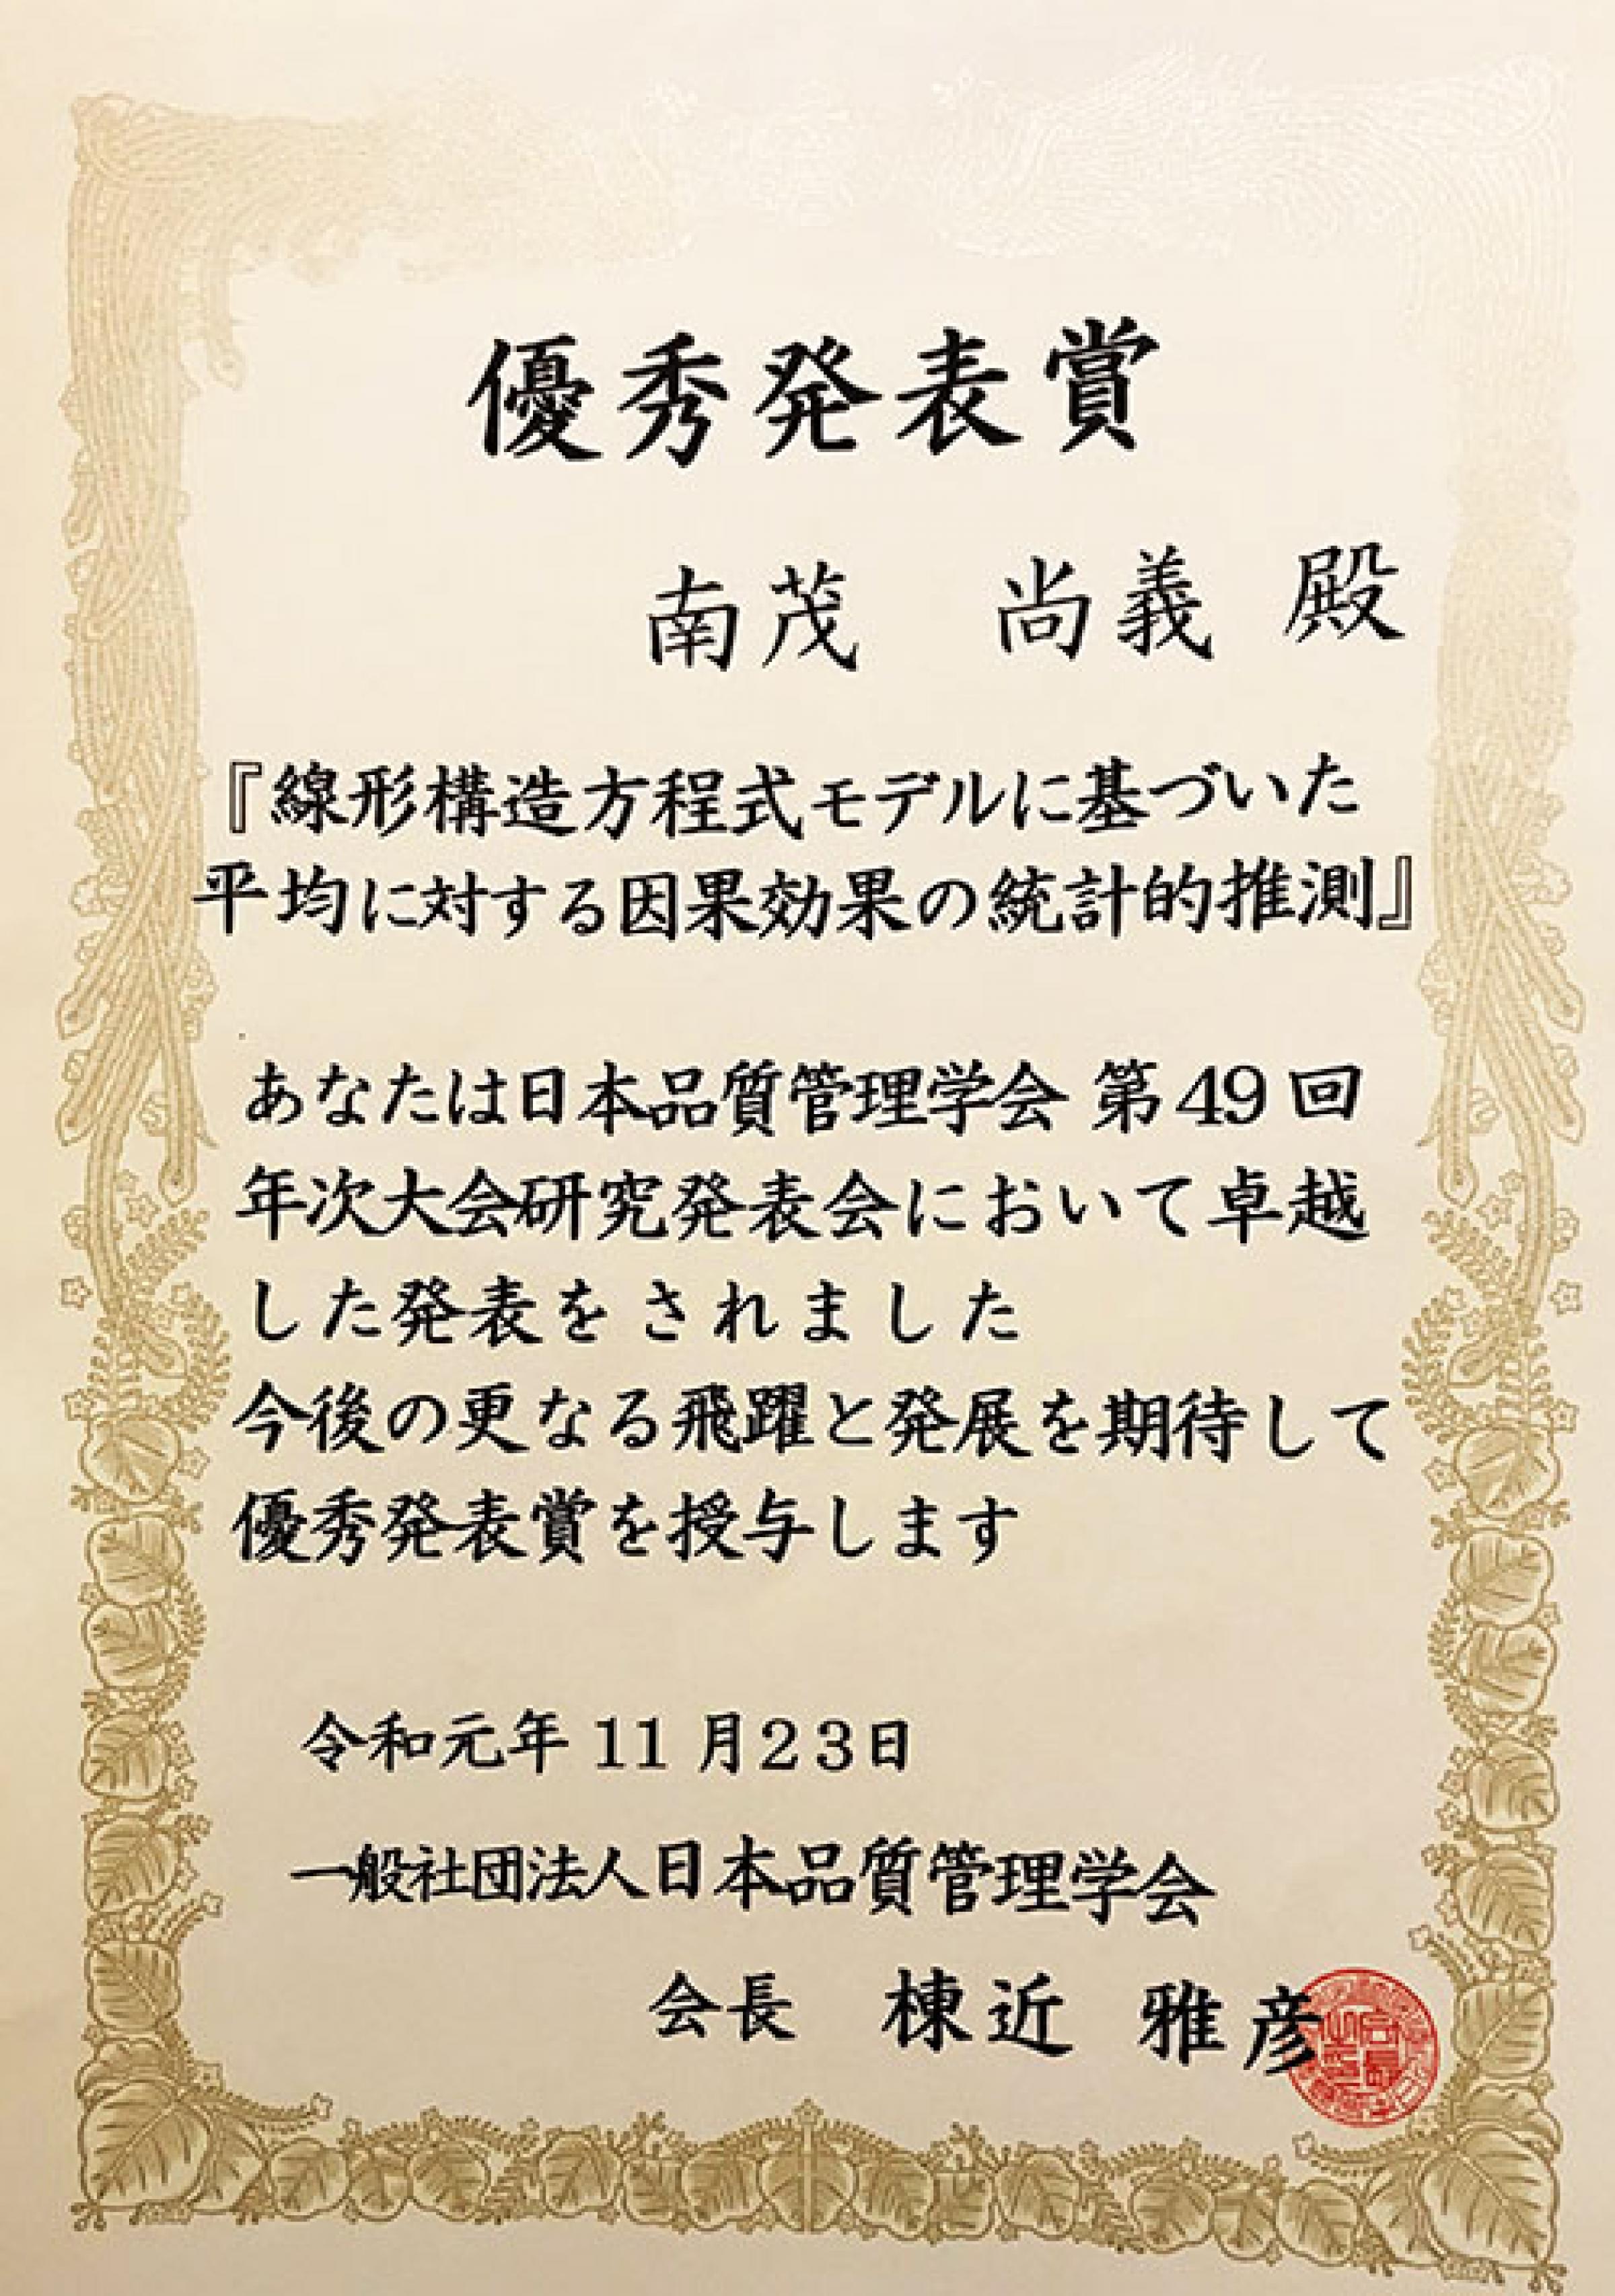 優秀発表賞
南茂 尚義 殿
『線形構造方程式モデルに基づいた
平均に対する因果効果の統計的推測』
あなたは日本品質管理学会 第49回
年次大会研究発表会において卓越
した発表をされました
今後の更なる飛躍と発展を期待して
優秀発表賞を授与します
令和元年 11 月23日
一般社団法人日本品質管理学会
会長 棟近 雅彦